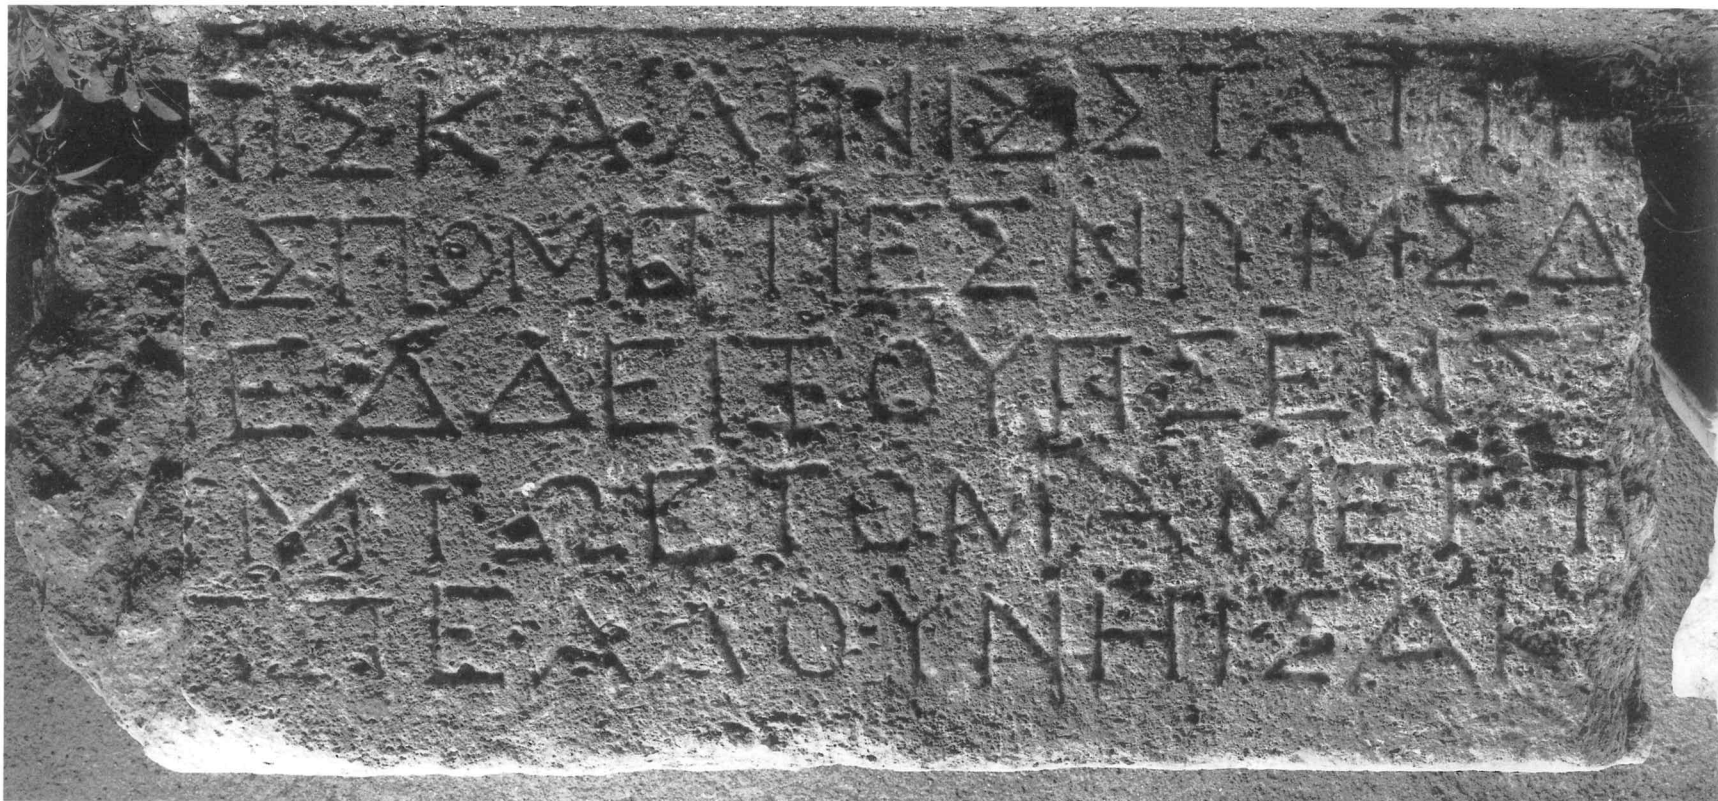 ΝΙΣΚΑΛΙΝΙΣΣΤΑΤΙ
ΑΣΠΟΜΠΤΙΕΣΝΙΥΜΣΔ
ΕΔΔΕΙΞΟΥΠΣΕΝΣ
ΙΜΤΩΕΤΟΜΑΜΕΡΤ
ΠΠΕΛΛΟΥΝΗΙΣΑΚ